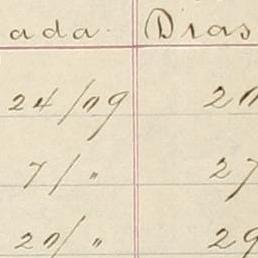 ada. Dias
24/79 20
7/ " 27
20/ " 29